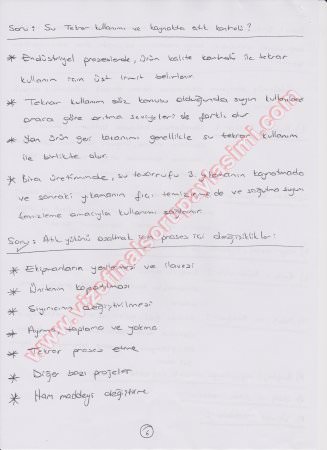 Soru: Su Tekrar kullanımı ve kaynakta atık kontrolü?
* Endüstriyel proseslerde, ürün kalite kontrolü ile tekrar
kullanım için üst limit belirlenir.
* Tekrar kullanım söz konusu olduğunda suyun kullanılma
amacına göre arıtma seviyeleri de farklı olur
* Yan ürün geri kazanımı genellikle su tekrar kullanım
ile birlikte olur.
* Bira üretiminde, su tasarrufu 3. yıkamanın kaynatmada
ve sonraki yıkamanın fıçı temizlemede ve soğutma suyun
temizleme amacıyla kullanımı sağlanır.
Soru: Atık yükünü azaltmak için proses içi değişiklikler:
* Ekipmanların yenilenmesi ve ilavesi
* Ünitenin kapatılması
* değiştirilmesi
* Ayrı toplama ve yakma
* Tekrar proses etme
* Diğer bazı projeler
* Ham maddeyi değiştirme
6
www.vizefinalsorupaylasimi.com